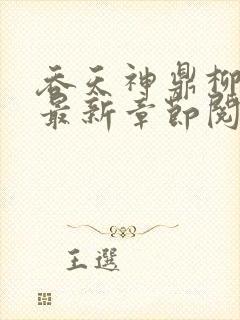 吞天神鼎柳
最新章节阅
王選